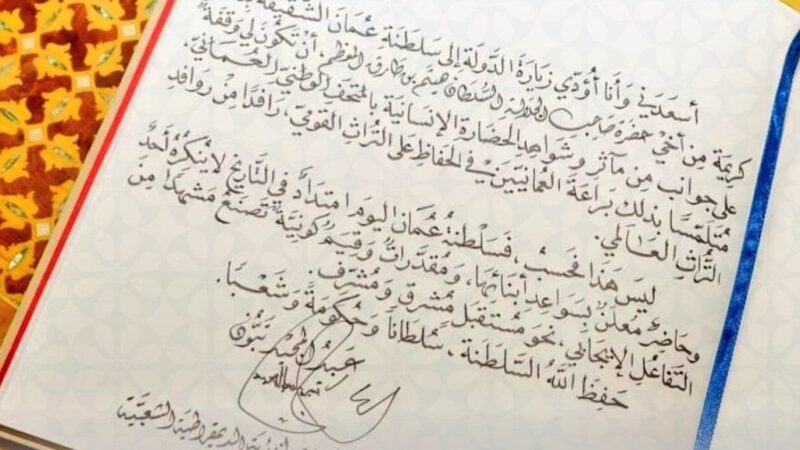 أسعدني وَأنا أُؤدّي زيَارَةَ الدَّولَة إلى سَلطنَةِ عُمَانَ الشَّقيقَةِ
كريمَة مِن أخي حَضرَة صَاحِب الجلالة السُّلطان هيثم بن طارق المعظم، أن تكونَ لي وَقفَة
على جوانب مِن مآثرِ وشواهِدِ الحضَارة الإنسانية بالمتحَفِ الوطنيّ العُمَانيّ،
مُتلمّسًا بذلك بَراعَةَ العُمانيّين في الحفاظ على التُّراثِ القوميّ، رافدًا مِنْ روَافدِ
التُّراثِ العَالمي.
ليسَ هذا فحَسبُ، فسَلْطنةُ عُمَان اليومَ امتدَادٌ في التَّاريخ لا ينكرُهُ أحَدٌ
وحَاضِرٌ مُعلَنٌ بسَوَاعِدِ أبنَائها، وَمُقدّراتٌ وَقِيَمٌ كَونيَّةٌ تَصنَعُ مَشهدًا مِنَ
التّفاعُل الإيجابي، نحوَ مُستقبَل مُشرق وَمُشَرّف.
حَفِظَ اللهُ السَّلطَنَة، سُلطاناً وَحُكومَةً وَشَعبًا.
عَبد المجيد تبُّون
الديمقراطية الشعبيَّة